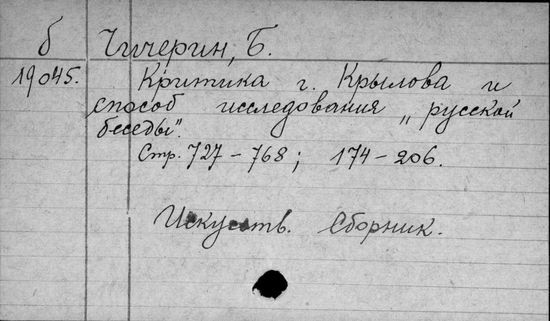 б Чичерин, Б.
19045. Критика г. Крылова и
способ исследования „русской
беседы".
Стр. 727 – 768; 174 – 206.
Искусств. Сборник.